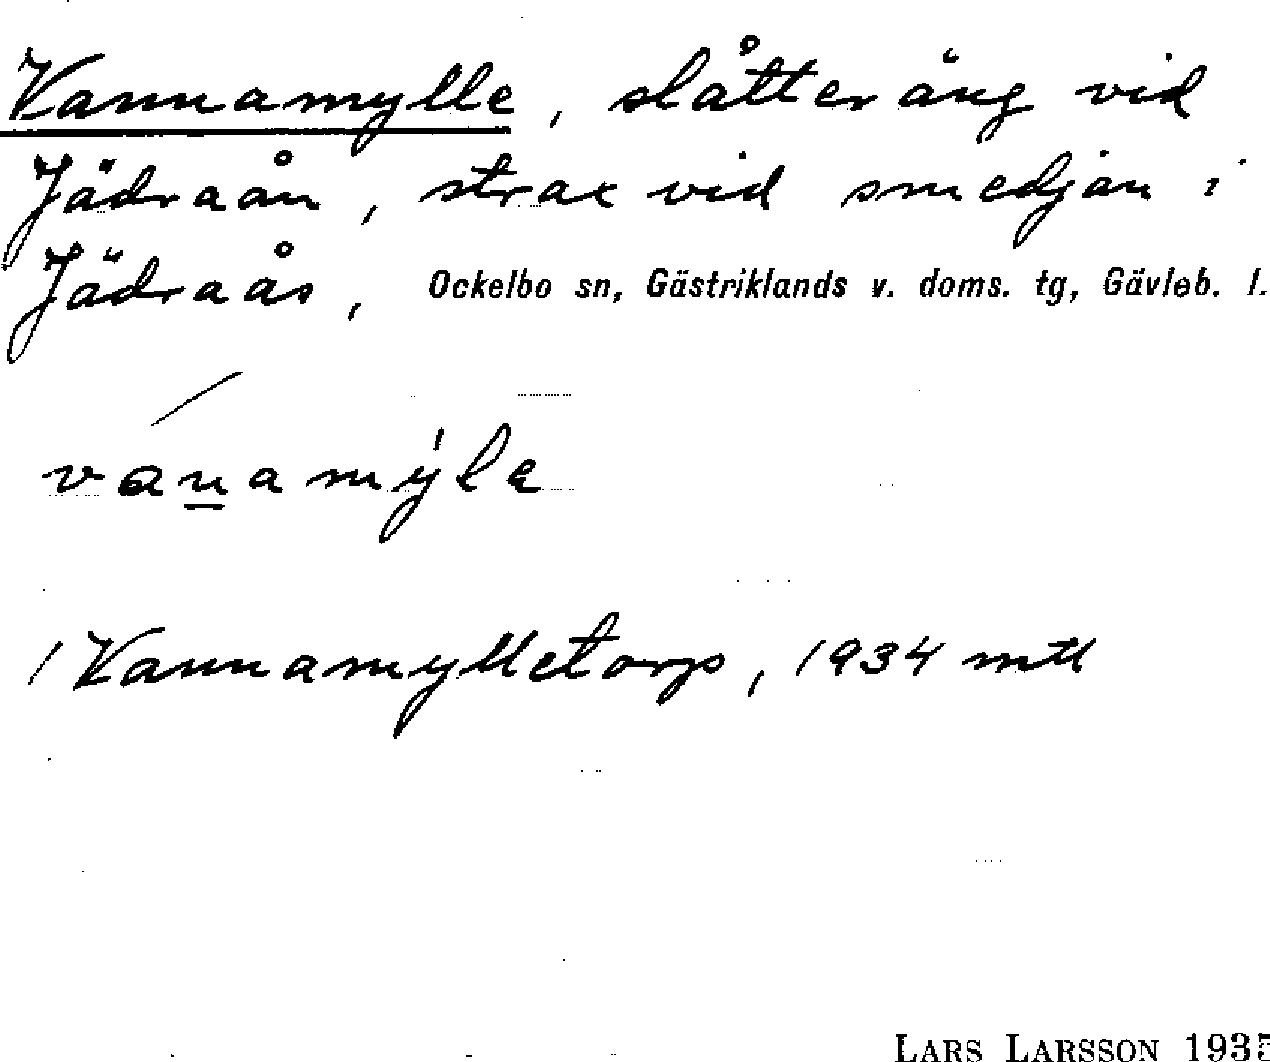 Vannamylle, slåtteräng vid
Jädraån, strax vid smedjan i
Jädraås, Ockelbo sn, Gästriklands v. doms. tg, Gävleb. l.
vanamýle
/ Vannamylletorp, 1934 mtl
LARS LARSSON 1935